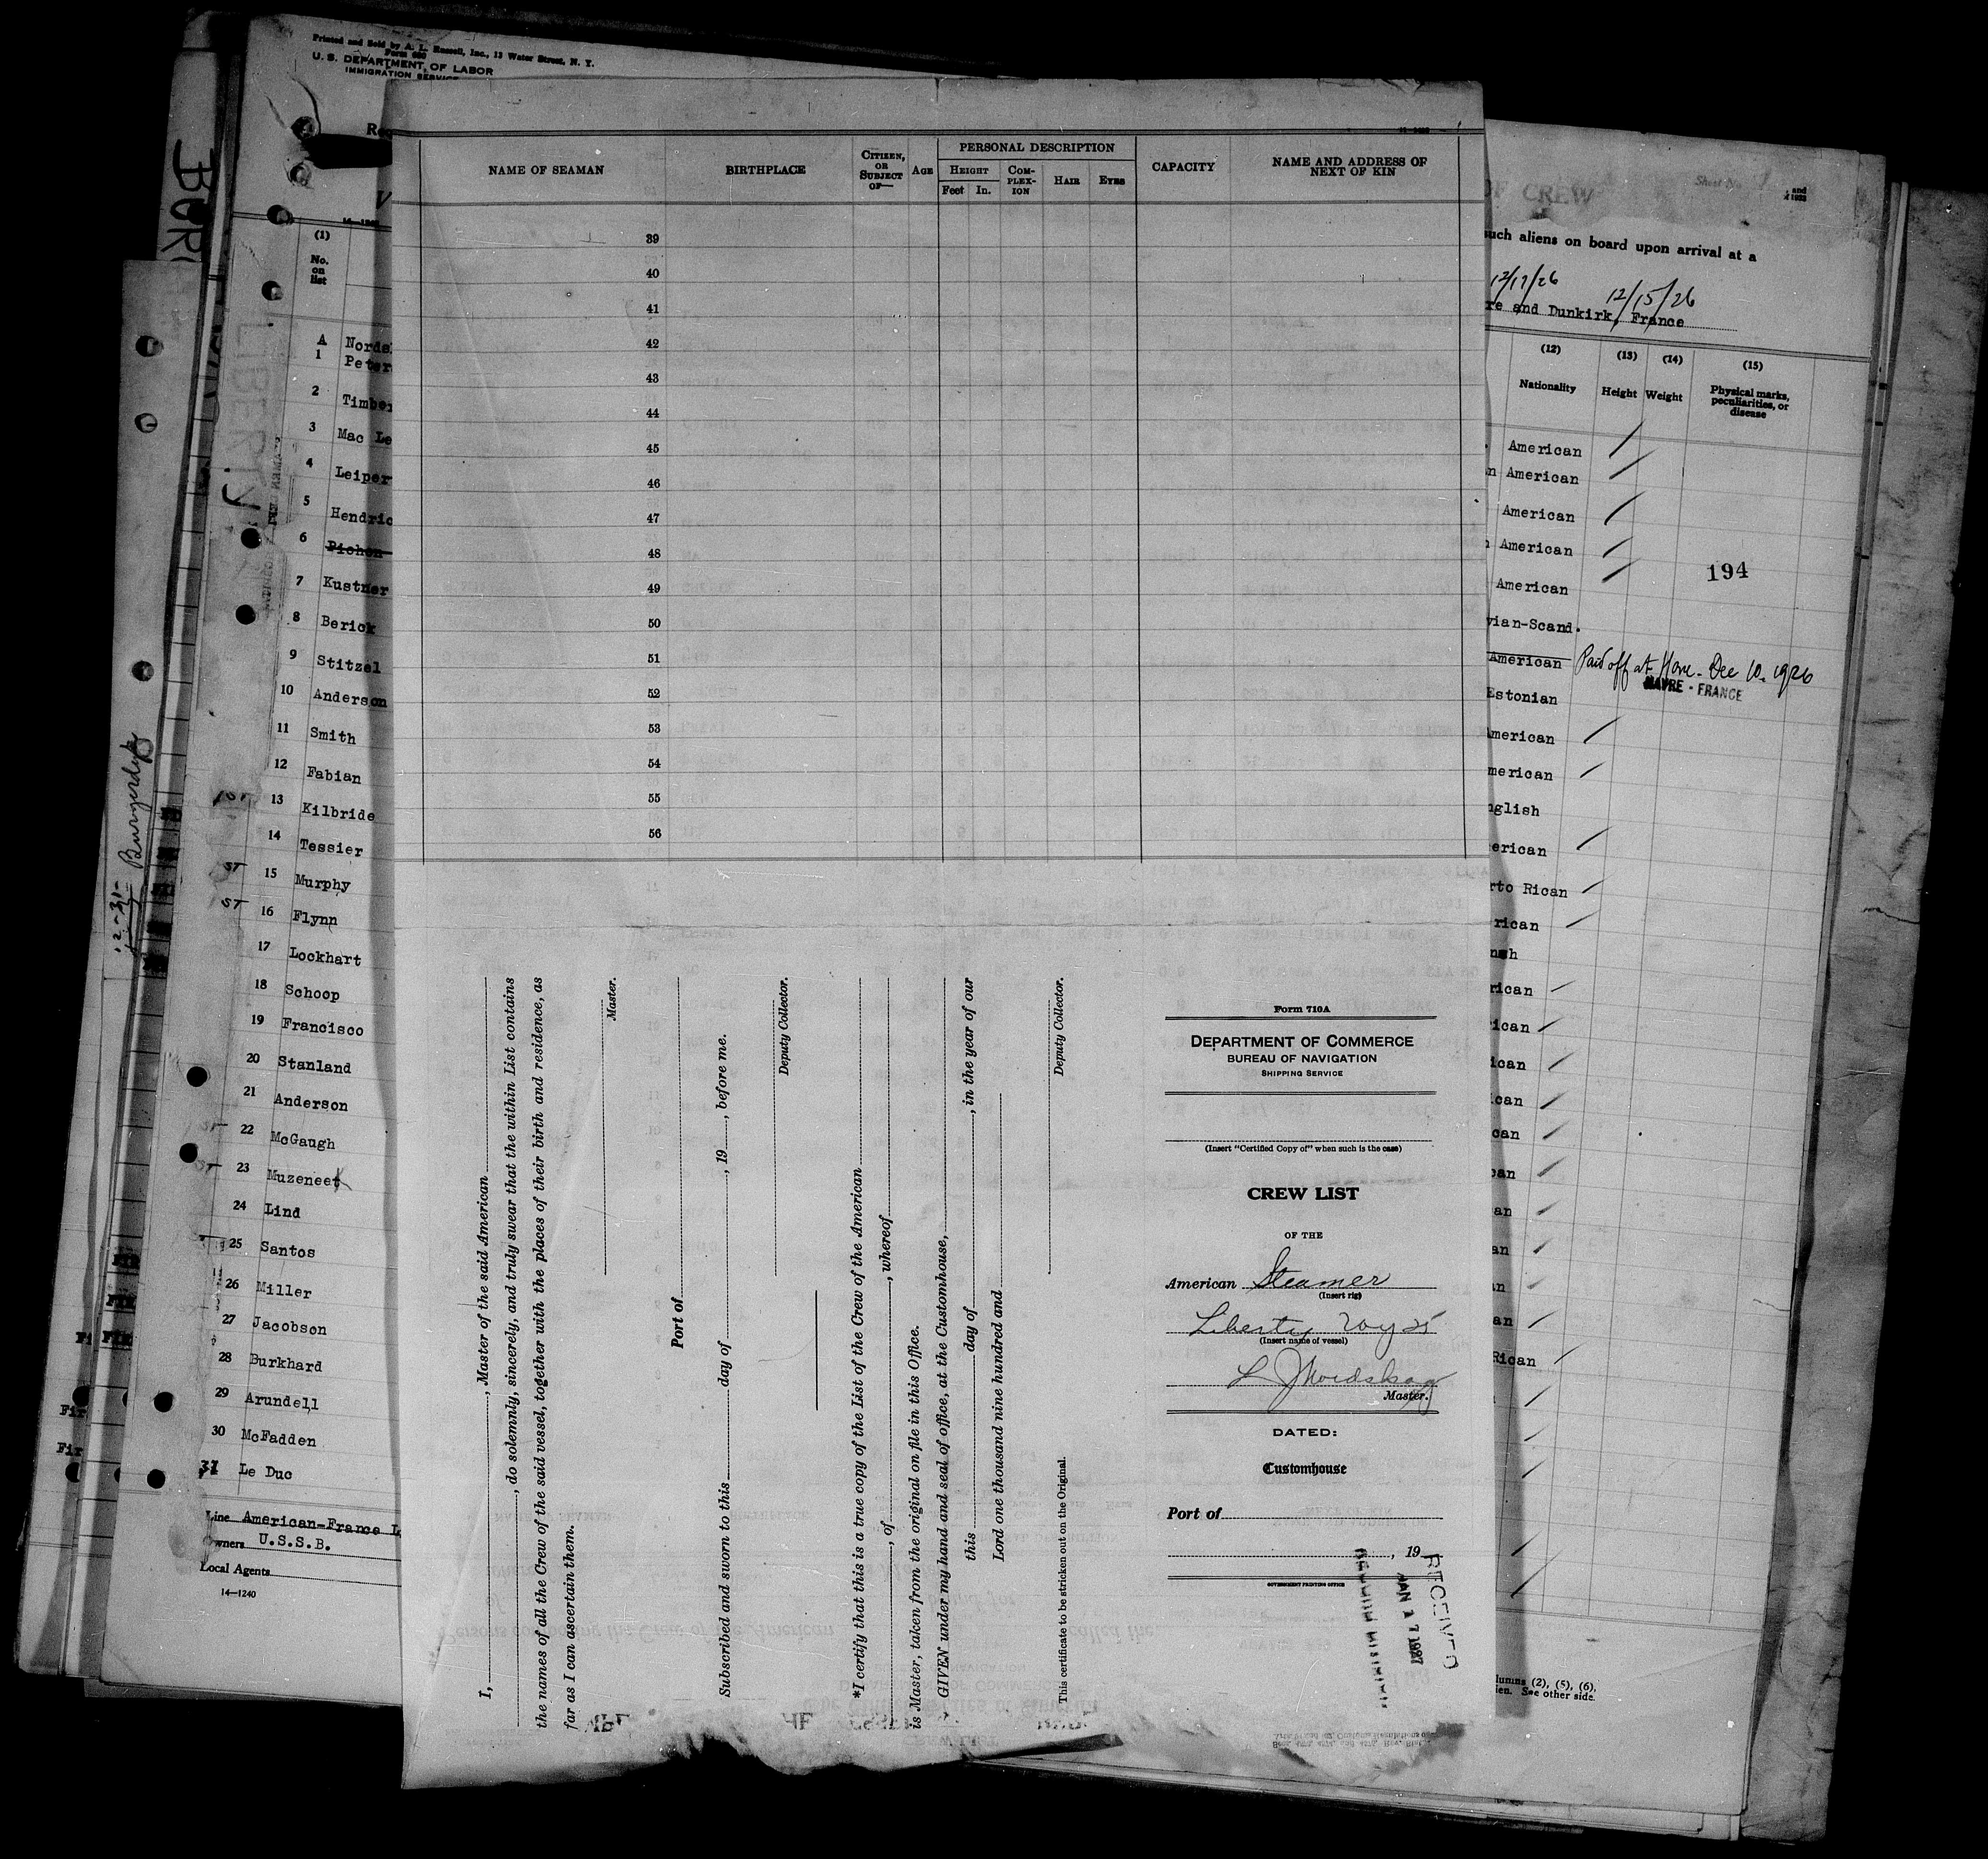 Printed and Sold by A. L. Russell, Inc., 13 Water Street, N. Y.
Form 680
U. S. DEPARTMENT OF LABOR
IMMIGRATION SERVICE
(1)
No.
on
list
A Nords
1 Peter
2 Timber
3 Mac Le
4 Leiper
5 Hendric
6 Pichon
7 Kustner
8 Berick
9 Stitzel
10 Anderson
11 Smith
12 Fabian
13 Kilbride
14 Tessier
ST 15 Murphy
ST 16 Flynn
17 Lockhart
18 Schoop
19 Francisco
20 Stanland
21 Anderson
22 McGaugh
23 Muzeneet
24 Lind
25 Santos
26 Miller
27 Jacobson
28 Burkhard
29 Arundell
30 McFadden
31 Le Duc
Line American-France L
Owners U.S.S.B.
Local Agents
14—1240
LIBERTY
12-31-
NAME OF SEAMAN
BIRTHPLACE
CITIZEN, OR SUBJECT OF—
AGE
PERSONAL DESCRIPTION
HEIGHT
Feet In.
COMPLEXION
HAIR
EYES
CAPACITY
NAME AND ADDRESS OF NEXT OF KIN
39
40
41
42
43
44
45
46
47
48
49
50
51
52
53
54
55
56
I, , Master of the said American
, do solemnly, sincerely, and truly swear that the within List contains
the names of all the Crew of the said vessel, together with the places of their birth and residence, as
far as I can ascertain them.
Master.
Port of
Subscribed and sworn to this day of , 19 , before me.
Deputy Collector.
*I certify that this is a true copy of the List of the Crew of the American
, of , whereof
is Master, taken from the original on file in this Office.
GIVEN under my hand and seal of office, at the Customhouse,
this day of , in the year of our
Lord one thousand nine hundred and
Deputy Collector.
This certificate to be stricken out on the Original.
Form 710A
DEPARTMENT OF COMMERCE
BUREAU OF NAVIGATION
SHIPPING SERVICE
(Insert "Certified Copy of" when such is the case)
CREW LIST
OF THE
American Steamer
(Insert rig)
Liberty Voy 25
(Insert name of vessel)
L J Nordskog
Master.
DATED:
Customhouse
Port of
, 19
GOVERNMENT PRINTING OFFICE
RECEIVED
JAN 7 1927
OF CREW
Sheet No. 1
such aliens on board upon arrival at a
12/17/26 12/15/26
re and Dunkirk, France
(12) (13) (14) (15)
Nationality Height Weight Physical marks, peculiarities, or disease
American
n American
American
American
American
194
vian-Scand.
American Paid off at Havre - Dec 10, 1926
HAVRE - FRANCE
Estonian
American
merican
nglish
erican
rto Rican
rican
rican
ican
ican
can
can
can
an
an
n
an
Rican
lumns (2), (5), (6),
ien. See other side.